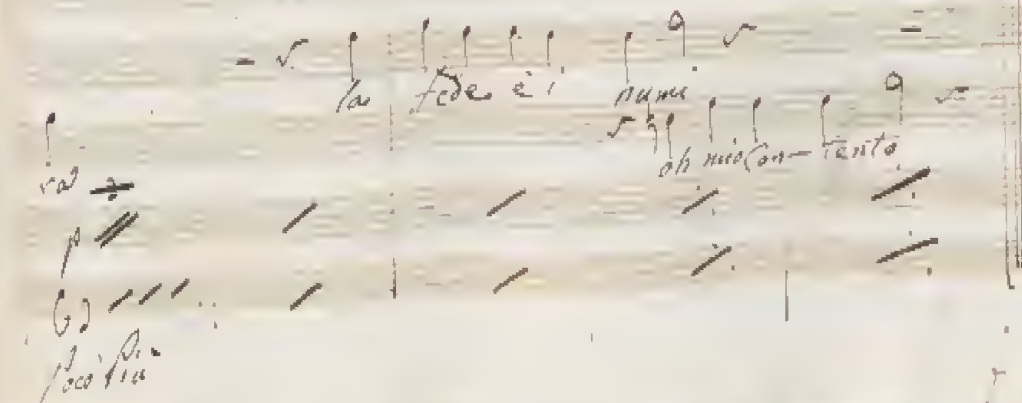 la fede e i numi
oh mio Con-tento
rà
p
poco più